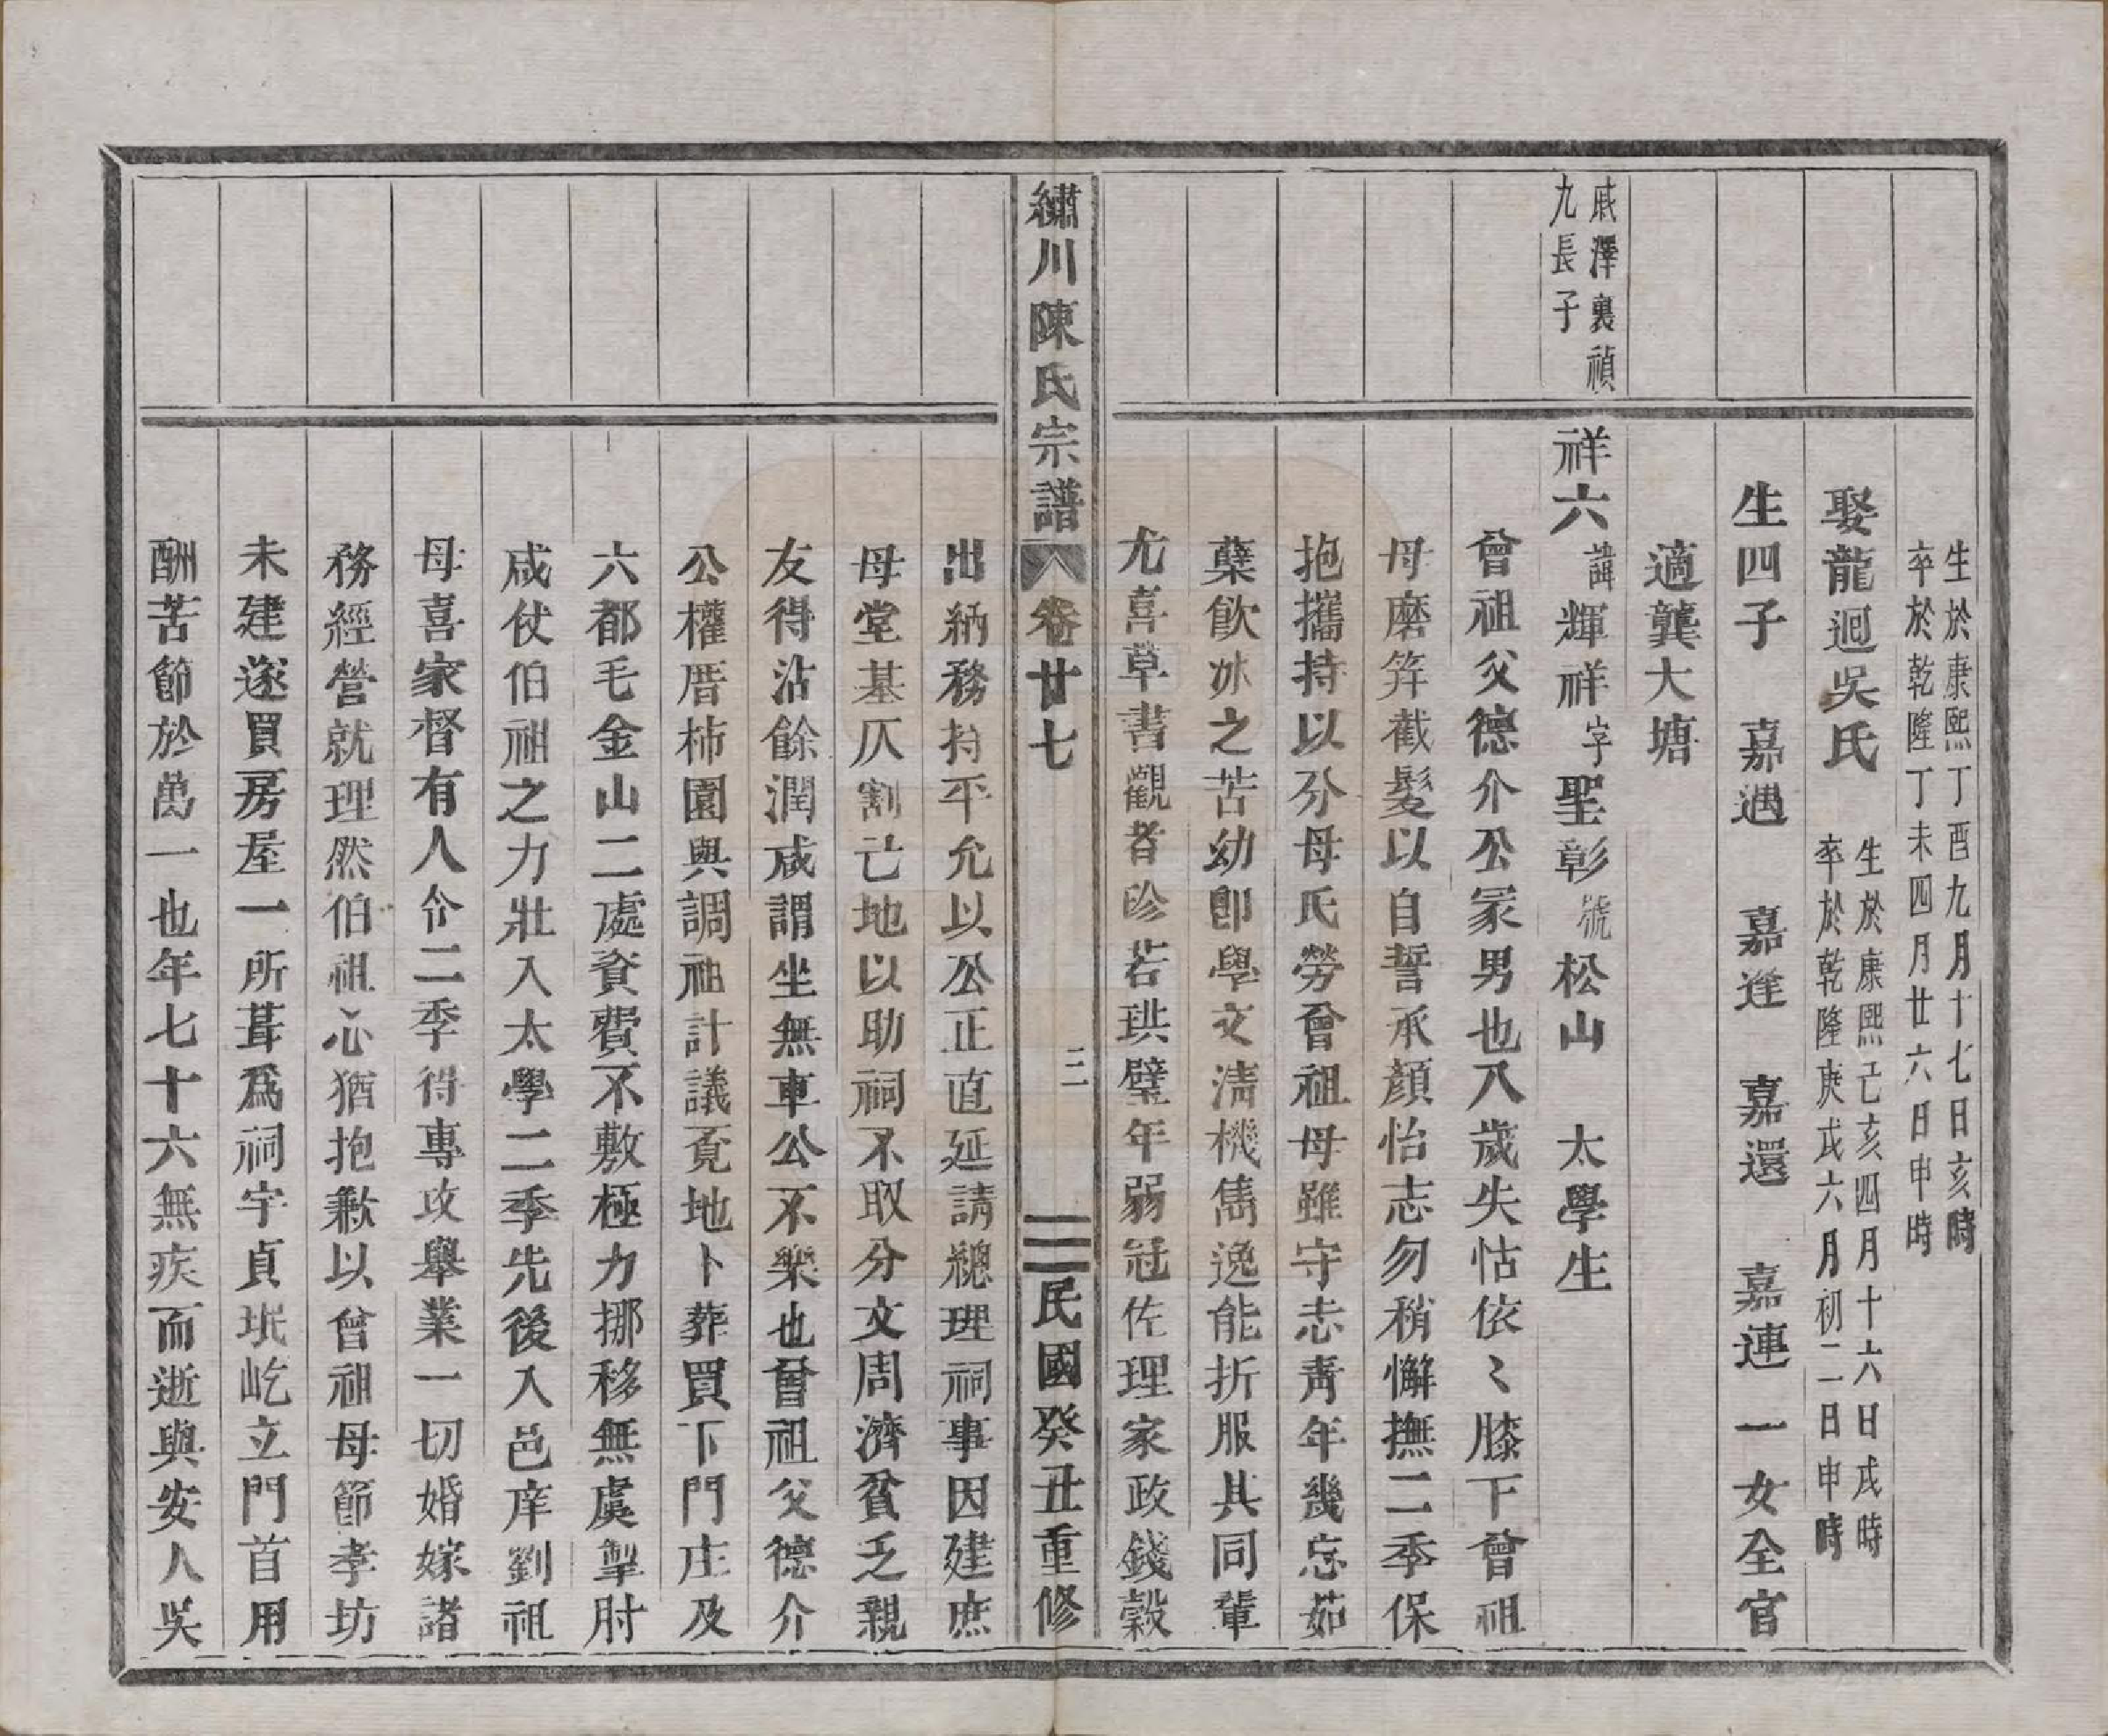 生於康熙丁酉九月十七日亥時
卒於乾隆丁未四月廿六日申時
娶龍迴吳氏
生於康熙己亥四月十六日戌時
卒於乾隆庚戌六月初二日申時
生四子 嘉遇 嘉逢 嘉還 嘉連 一女全官
適龔大塘
戚澤裏禎
九長子
祥六 諱輝祥 字聖彰 號松山 太學生
曾祖父德介公冢男也八歲失怙依〻膝下曾祖
母磨筓截髮以自誓承顏怡志勿稍懈撫二季保
抱攜持以分母氏勞曾祖母雖守志青年幾忘茹
蘖飲冰之苦幼卽學文淸機雋逸能折服其同輩
尤喜草書觀者珍若珙璧年弱冠佐理家政錢穀
繡川陳氏宗譜 卷廿七 二 民國癸丑重修
出納務持平允以公正直延請總理祠事因建庶
母堂基仄割己地以助祠不取分文周濟貧乏親
友得沾餘潤咸謂坐無車公不樂也曾祖父德介
公權厝柿園與調祖計議覓地卜葬買下門庄及
六都毛金山二處資費不敷極力挪移無虞掣肘
咸仗伯祖之力壯入太學二季先後入邑庠劉祖
母喜家督有人令二季得專攻舉業一切婚嫁諸
務經營就理然伯祖心猶抱歉以曾祖母節孝坊
未建遂買房屋一所葺爲祠宇貞珉屹立門首用
酬苦節於萬一也年七十六無疾而逝與安人吳